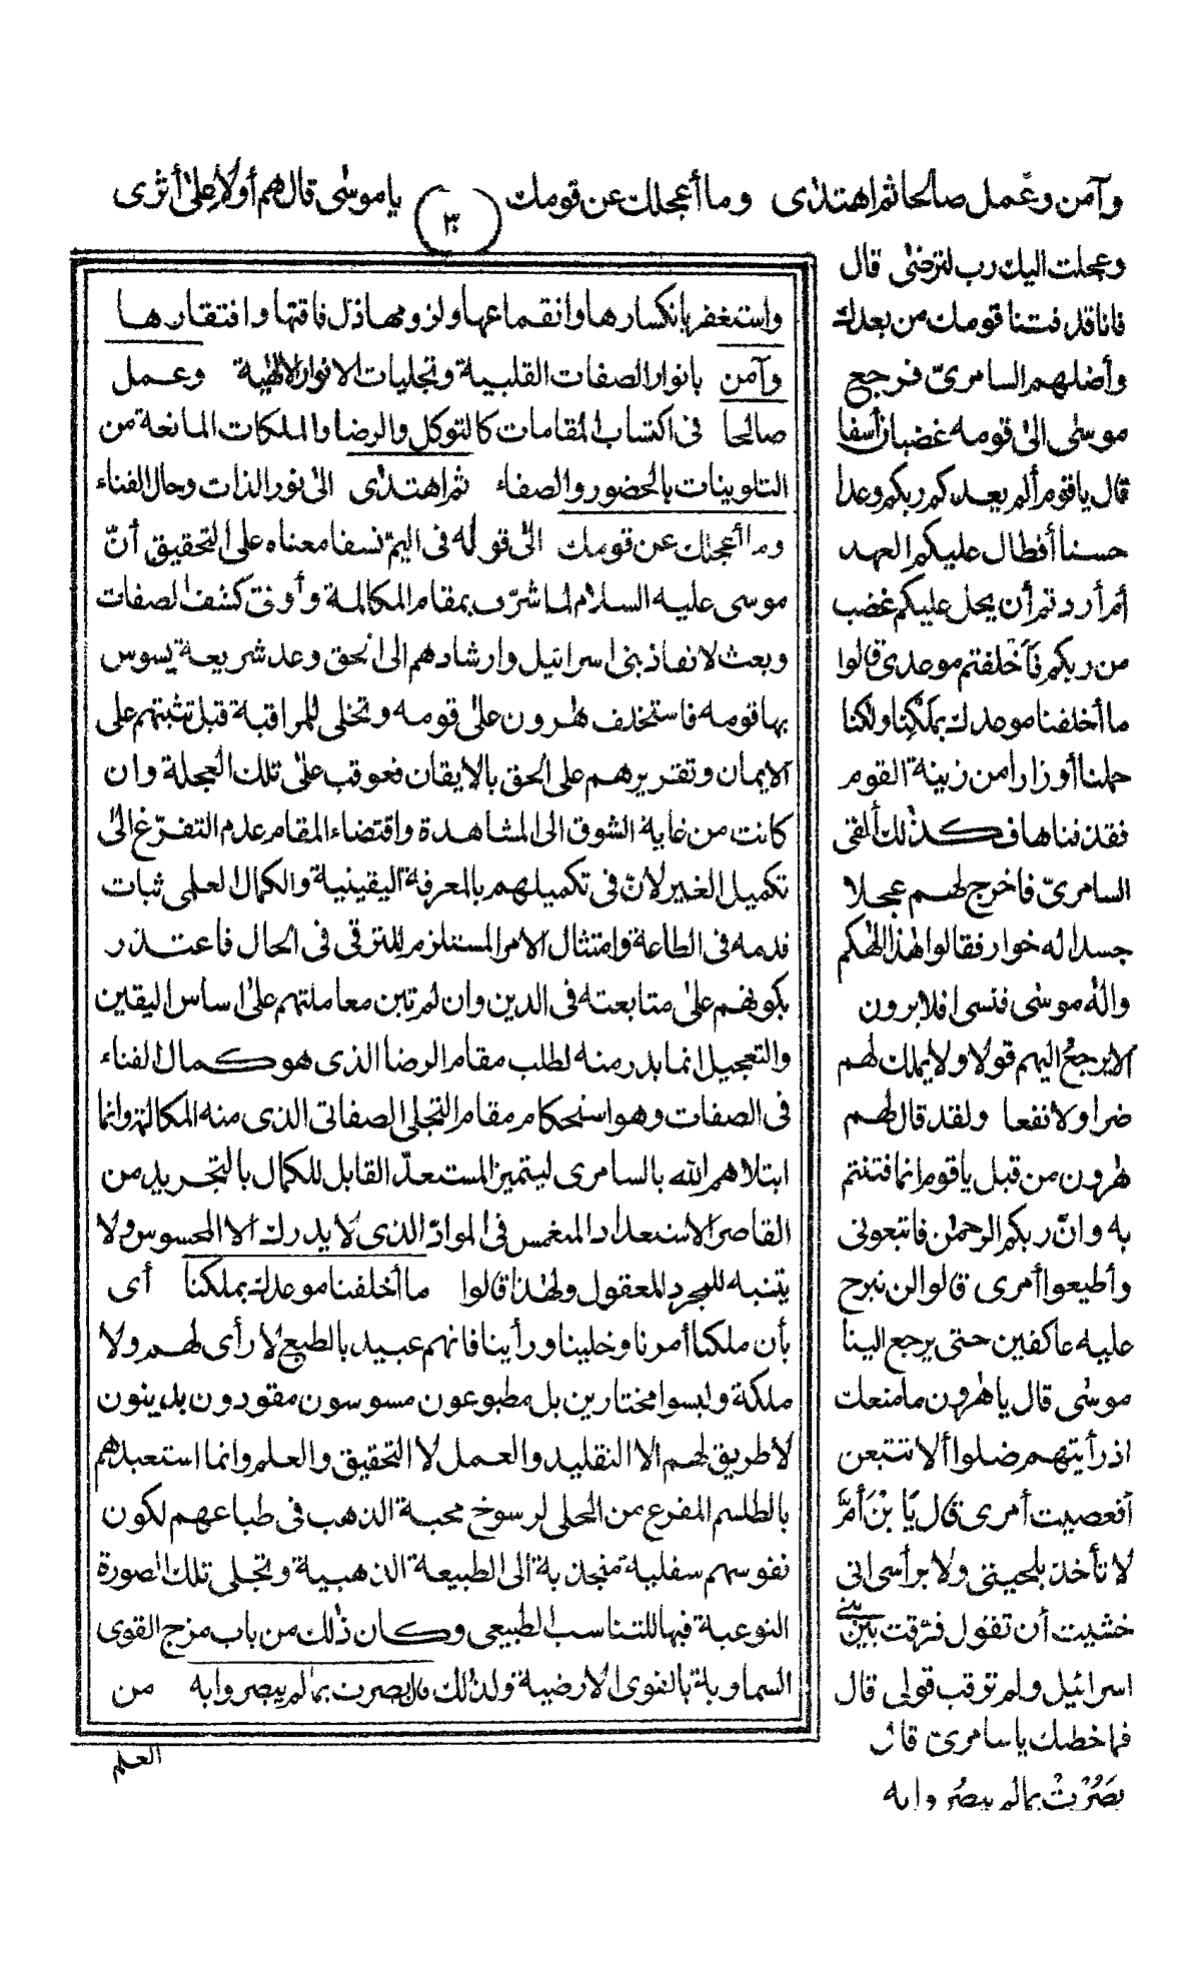 وآمن وعمل صالحا ثم اهتدى وما أعجلك عن قومك
٣٠
ياموسى قال هم أولاء على أثرى
وعجلت اليك رب لترضى قال
فانا قد فتنا قومك من بعدك
وأضلهم السامرىّ فرجع
موسى الى قومه غضبان أسفا
قال ياقوم ألم يعدكم ربكم وعدا
حسنا أفطال عليكم العهد
أم أردتم أن يحل عليكم غضب
من ربكم فأخلفتم موعدى قالوا
ما أخلفنا موعدك بملكنا ولكنا
حملنا أوزارا من زينة القوم
فقذفناها فكذلك ألقى
السامرىّ فاخرج لهم عجلا
جسدا له خوار فقالوا هذا الهكم
واله موسى فنسى افلا يرون
ألا يرجع اليهم قولا ولا يملك لهم
ضرا ولا نفعا ولقد قال لهم
هرون من قبل ياقوم انما فتنتم
به وانّ ربكم الرحمن فاتبعونى
وأطيعوا أمرى قالوا لن نبرح
عليه عاكفين حتى يرجع الينا
موسى قال ياهرون مامنعك
اذ رأيتهم ضلوا ألا تتبعن
أفعصيت أمرى قال يَا بْنَ أُمَّ
لا تأخذ بلحيتى ولا برأسى انى
خشيت أن تقول فرّقت بين بنى
اسرائيل ولم ترقب قولى قال
فما خطبك ياسامرى قال
بَصُرْتُ بمالم يبصُروا به
واستغفر بانكسارها وانقماعها ولزومها ذل فاقتها وافتقارها
وآمن بانوار الصفات القلبية وتجليات الانوار الالهية وعمل
صالحا فى اكتساب المقامات كالتوكل والرضا والملكات المانعة من
التلوينات بالحضور والصفاء ثم اهتدى الى نور الذات وحال الفناء
وما أعجلك عن قومك الى قوله فى اليمّ نسفا معناه على التحقيق أنّ
موسى عليه السلام لما شرّف بمقام المكالمة وأوتى كشف الصفات
وبعث لانقاذ بنى اسرائيل وارشادهم الى الحق وعد شريعة يسوس
بها قومه فاستخلف هرون على قومه وتخلى للمراقبة قبل تثبتهم على
الايمان وتقريرهم على الحق بالايقان فعوقب على تلك العجلة وان
كانت من غاية الشوق الى المشاهدة واقتضاء المقام عدم التفرّغ الى
تكميل الغير لانّ فى تكميلهم بالمعرفة اليقينية والكمال العلمى ثبات
قدمه فى الطاعة وامتثال الامر المستلزم للترقى فى الحال فاعتذر
بكونهم على متابعته فى الدين وان لم تبن معاملتهم على اساس اليقين
والتعجيل انما بدر منه لطلب مقام الرضا الذى هو كمال الفناء
فى الصفات وهو استحكام مقام التجلى الصفاتى الذى منه المكالمة وانما
ابتلاهم الله بالسامرى ليتميز المستعدّ القابل للكمال بالتجريد من
القاصر الاستعداد المنغمس فى الموادّ الذى لا يدرك الا المحسوس ولا
يتنبه للمجرد المعقول ولهذا قالوا ما أخلفنا موعدك بملكنا أى
بأن ملكنا أمرنا وخلينا ورأينا فانهم عبيد بالطبع لا رأى لهم ولا
ملكة وليسوا مختارين بل مطبوعون مسوسون مقودون بدينون
لا طريق لهم الا التقليد والعمل لا التحقيق والعلم وانما استعبدهم
بالطلسم المفرع من الحلى لرسوخ محبة الذهب فى طباعهم لكون
نفوسهم سفلية منجذبة الى الطبيعة الذهبية وتجلى تلك الصورة
النوعية فيها للتناسب الطبيعى وكان ذلك من باب مزج القوى
السماوية بالقوى الارضية ولذلك قال بصرت بمالم يبصروا به من
العلم